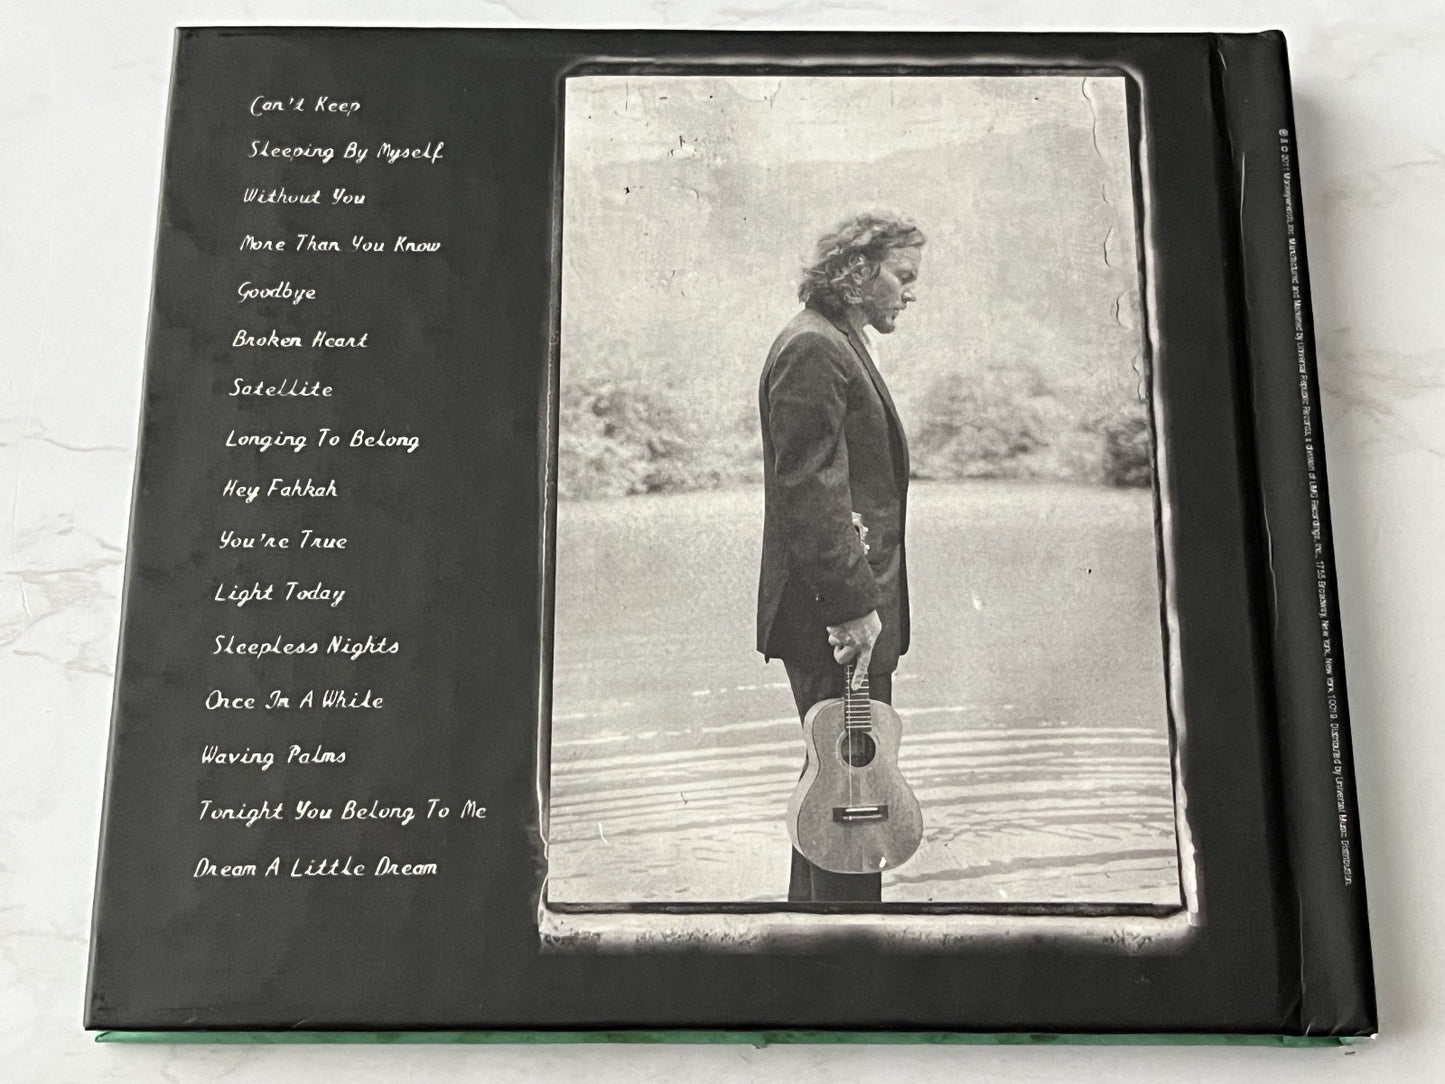 Can't Keep
Sleeping By Myself
Without You
More Than You Know
Goodbye
Broken Heart
Satellite
Longing To Belong
Hey Fahkah
You're True
Light Today
Sleepless Nights
Once In A While
Waving Palms
Tonight You Belong To Me
Dream A Little Dream
℗ & © 2011 Monkeywrench, Inc. Manufactured and Marketed by Universal Republic Records, a division of UMG Recordings, Inc., 1755 Broadway, New York, New York 10019. Distributed by Universal Music Distribution.